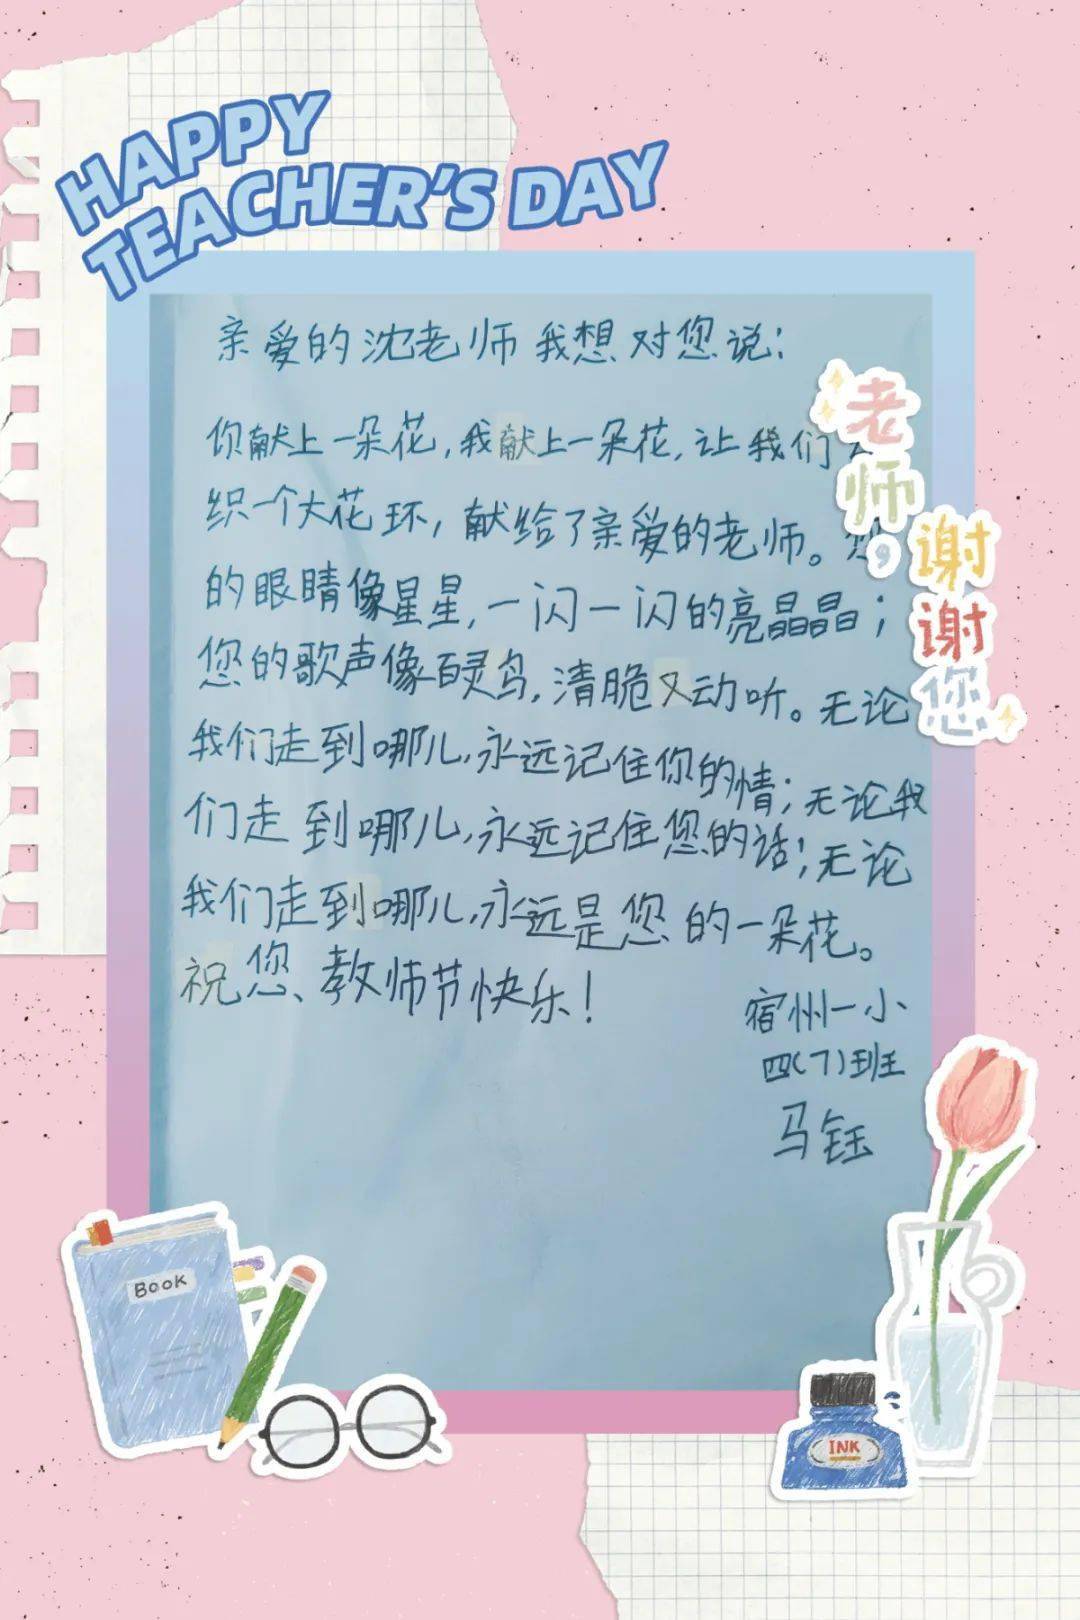 HAPPY
TEACHER'S DAY
亲爱的沈老师我想对您说:
你献上一朵花,我献上一朵花,让我们
织一个大花环,献给了亲爱的老师。
的眼睛像星星,一闪一闪的亮晶晶;
您的歌声像百灵鸟,清脆又动听。无论
我们走到哪儿,永远记住你的情;无论我
们走到哪儿,永远记住您的话;无论
我们走到哪儿,永远是您的一朵花。
祝您、教师节快乐!
宿州一小
四(7)班
马钰
老师,
谢谢您
BOOK
INK